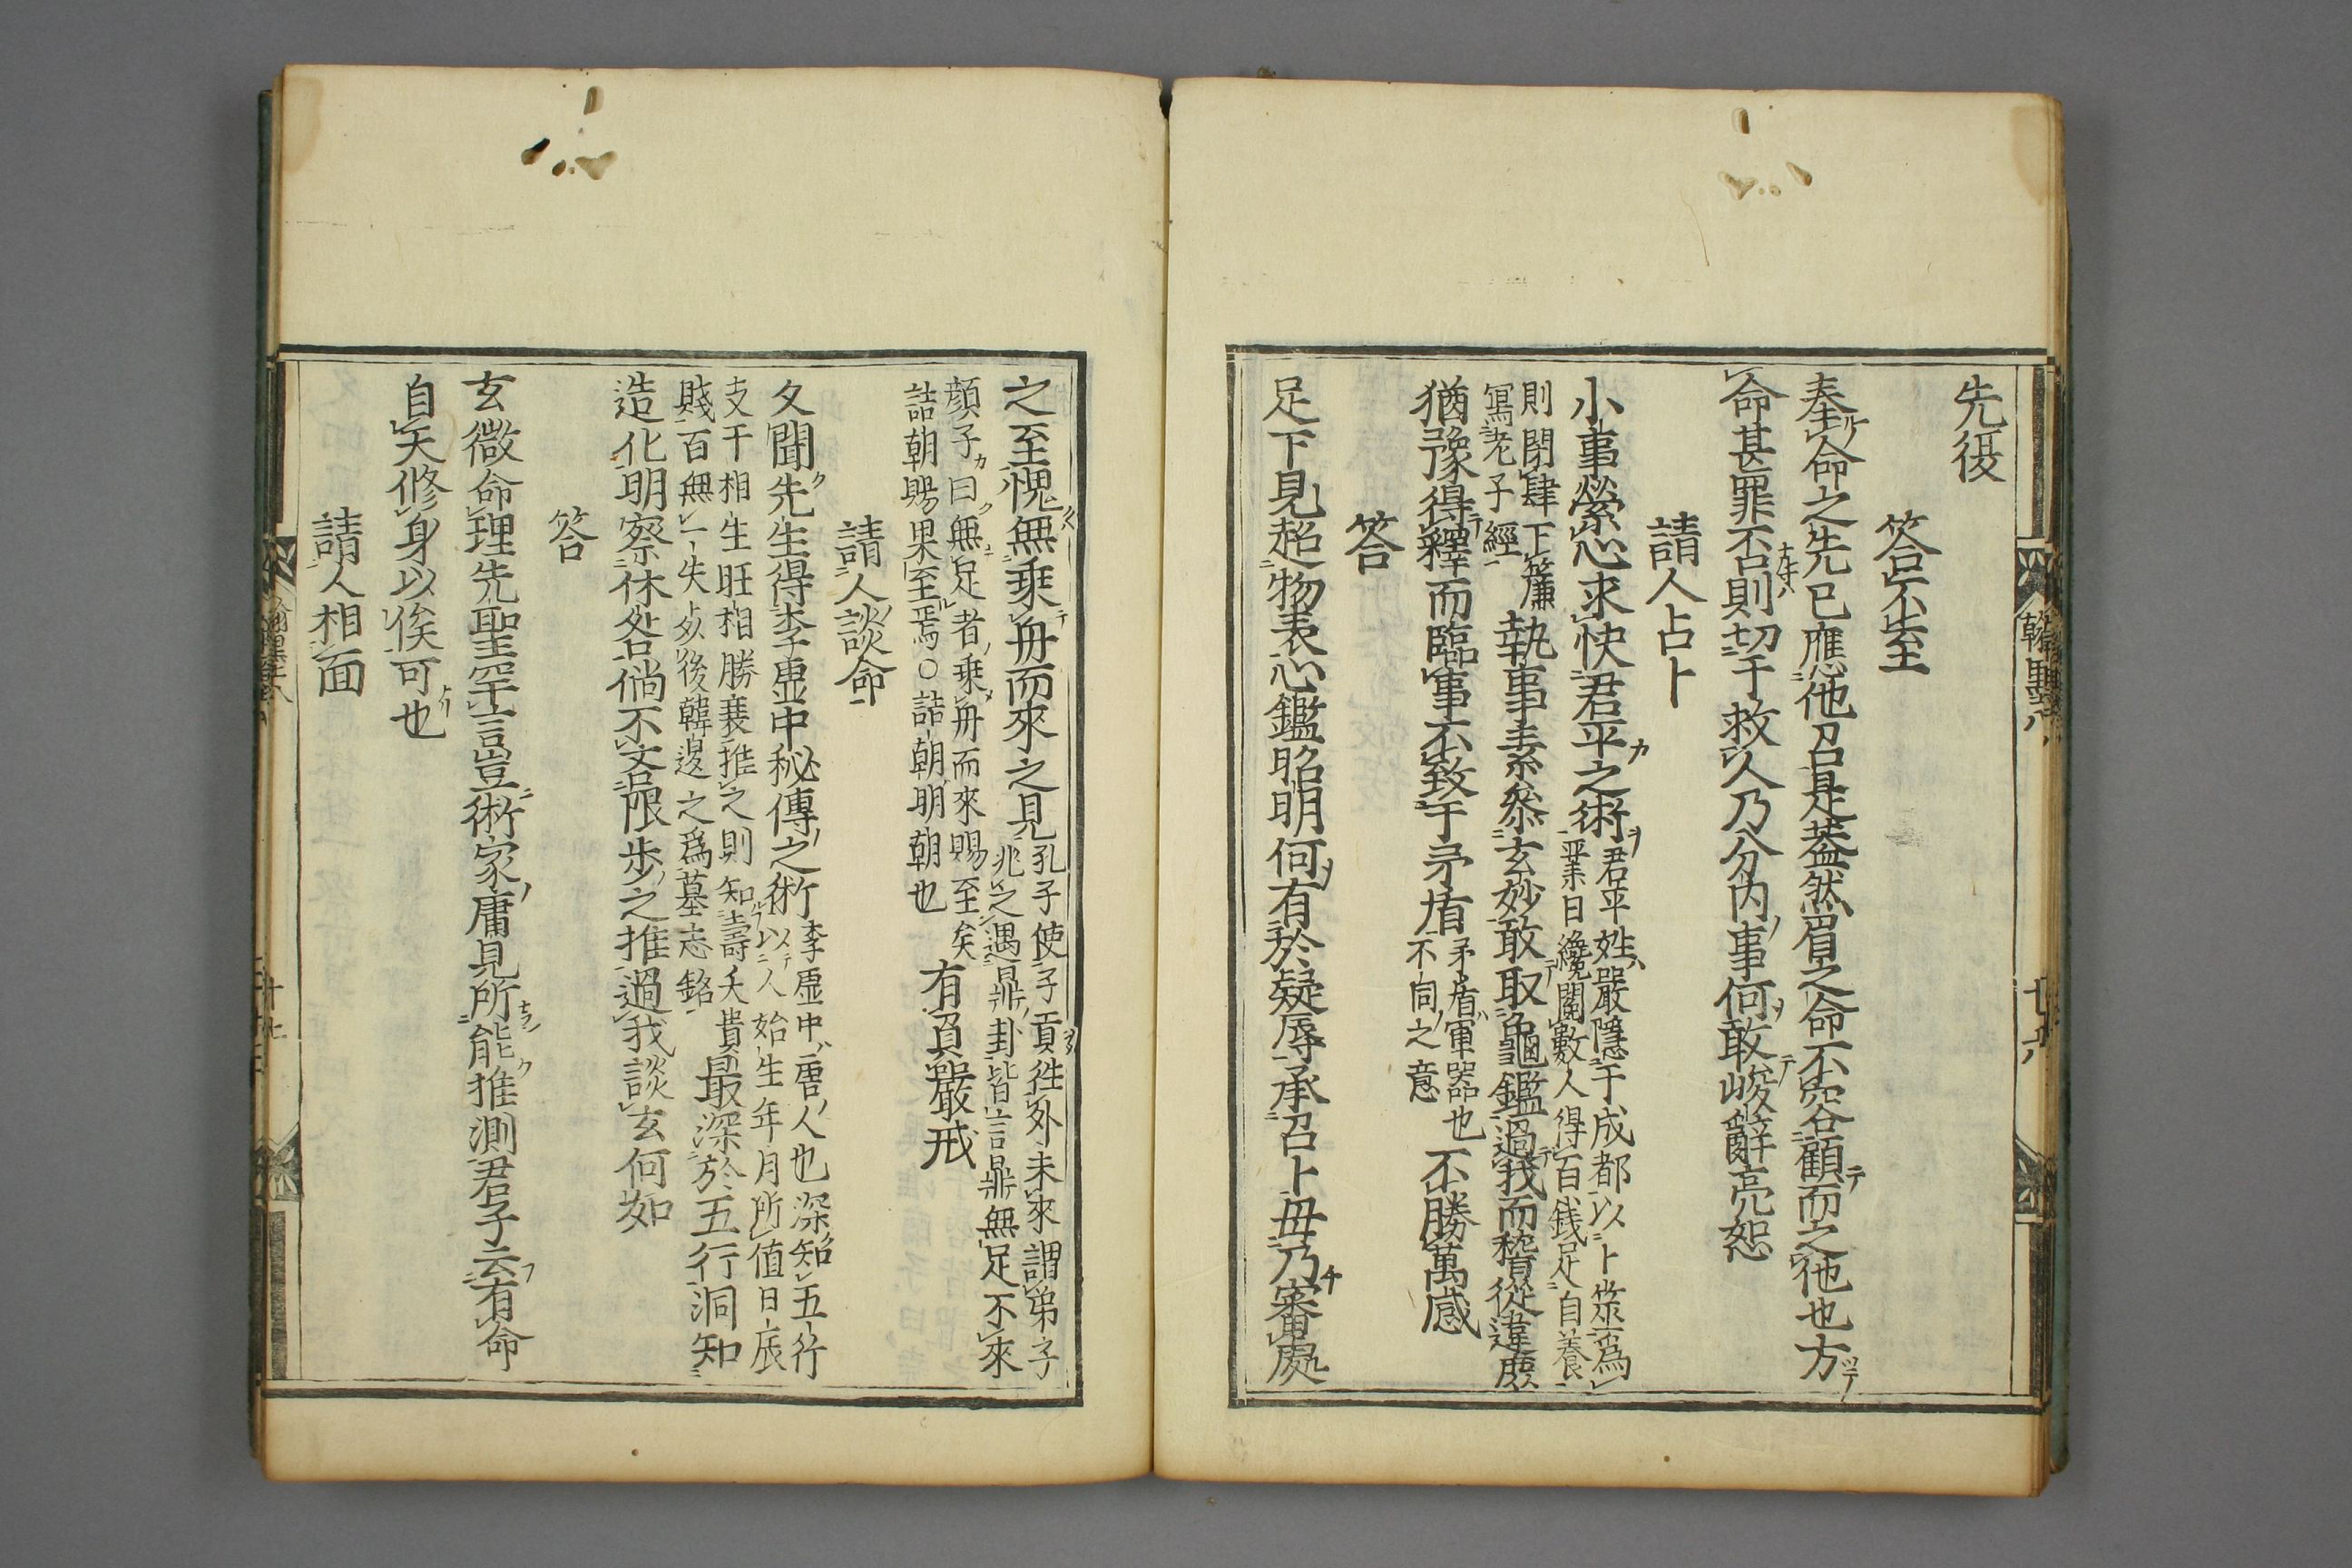 先後
答不至
奉命之先已應他召是蓋然眉之命不容顧而之他也方
命甚罪否則切于救人乃分内事何敢峻辭亮恕
請人占卜
小事縈心求快君平之術君平姓嚴隱于成都以卜筮爲
業日纔閱數人得百銭足自養
則閉肆下簾
寫老子經
執事素参玄妙敢取龜鑑過我而稽從違庶
猶豫得釋而臨事不致于矛盾矛盾軍器也
不同之意
不勝萬感
答
足下見超物表心鑑昭明何有於疑辱承召卜毋乃審處
之至愧無乗舟而來之見孔子使子貢徃外未來謂弟子
兆之遇鼎卦皆言鼎無足不來
顔子曰無足者乗舟而來賜至矣
詰朝賜果至焉○詰朝明朝也
有負嚴戒
請人談命
久聞先生得李虚中秘傳之術李虚中唐人也深知五行
以人始生年月所値日辰
支干相生旺相勝衰推之則知壽夭貴
賤百無一失歿後韓退之爲墓志銘
最深於五行洞知
造化明察休咎倘不吝限歩之推過我談玄何如
答
玄微命理先聖罕言豈術家庸見所能推測君子云有命
自天修身以俟可也
請人相面
翰墨八
廿六